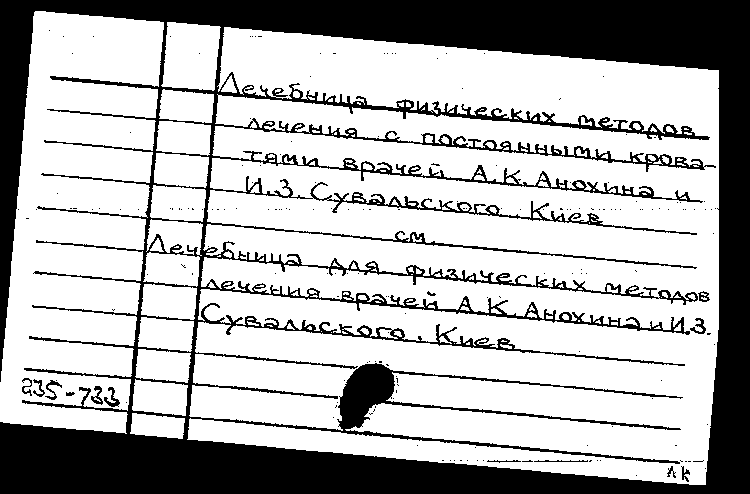 Лечебница физических методов
лечения с постоянными крова-
тями врачей А.К. Анохина и
И.З. Сувальского. Киев
см.
Лечебница для физических методов
лечения врачей А.К. Анохина и И.З.
Сувальского. Киев
235-733
лк